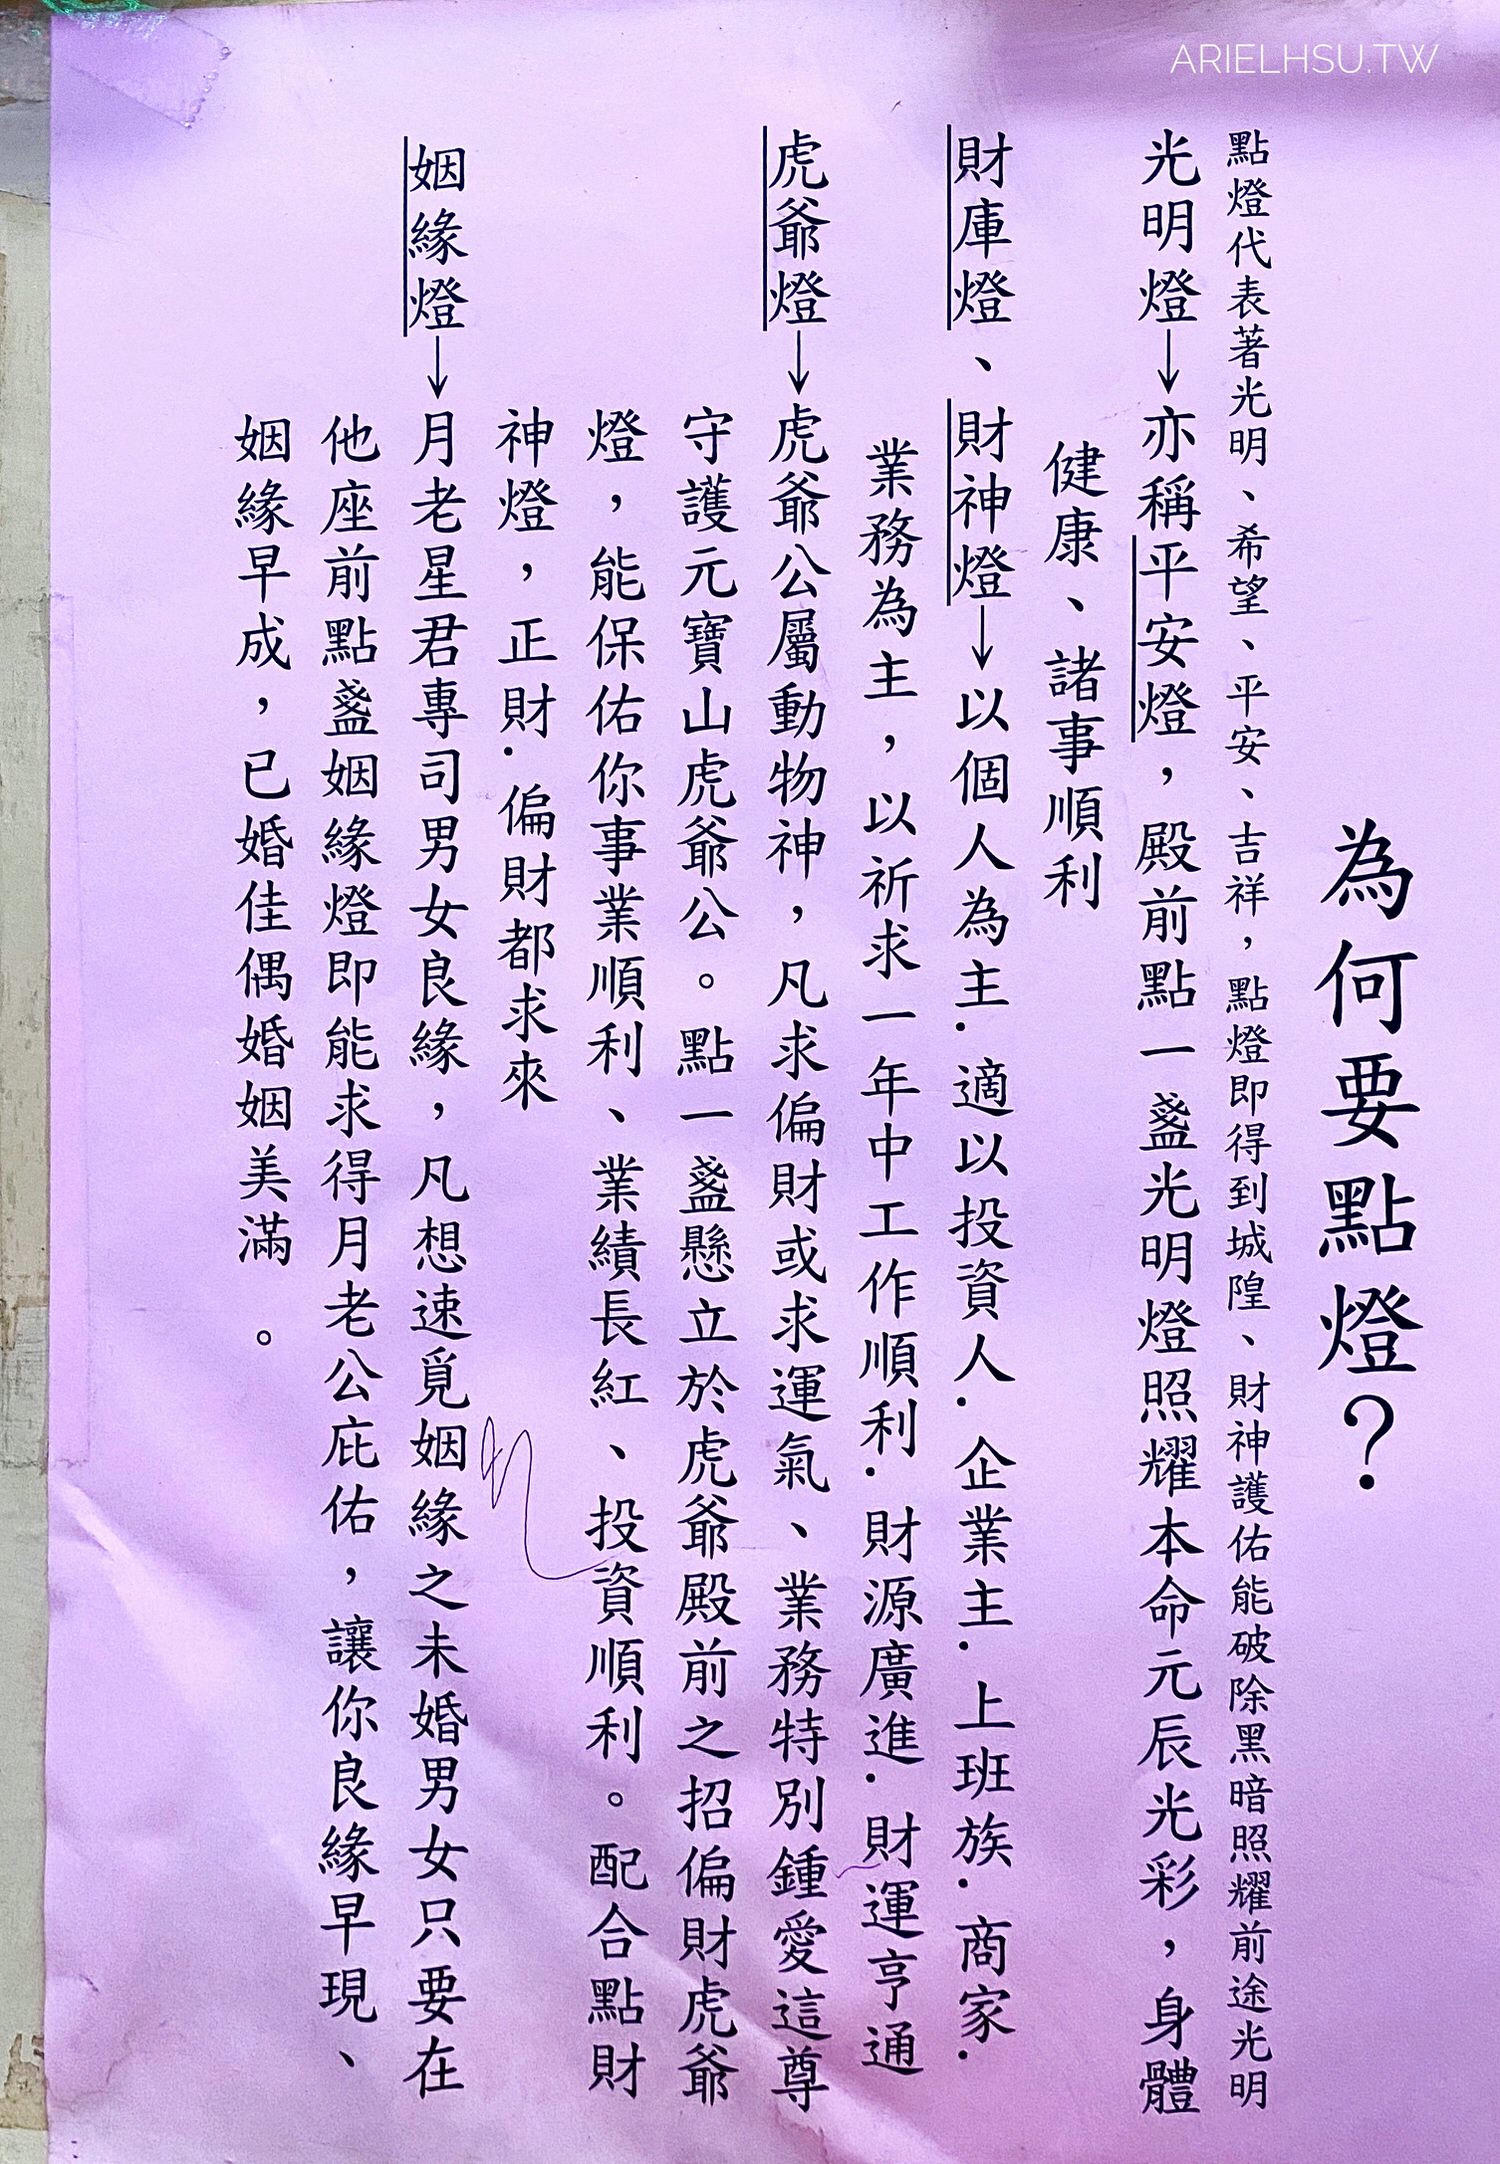 ARIELHSU.TW
為何要點燈？
點燈代表著光明、希望、平安、吉祥，點燈即得到城隍、財神護佑能破除黑暗照耀前途光明
光明燈→亦稱平安燈，殿前點一盞光明燈照耀本命元辰光彩，身體
健康、諸事順利
財庫燈、財神燈→以個人為主．適以投資人．企業主．上班族．商家．
業務為主，以祈求一年中工作順利．財源廣進．財運亨通
虎爺燈→虎爺公屬動物神，凡求偏財或求運氣、業務特別鍾愛這尊
守護元寶山虎爺公。點一盞懸立於虎爺殿前之招偏財虎爺
燈，能保佑你事業順利、業績長紅、投資順利。配合點財
神燈，正財．偏財都求來
姻緣燈→月老星君專司男女良緣，凡想速覓姻緣之未婚男女只要在
他座前點盞姻緣燈即能求得月老公庇佑，讓你良緣早現、
姻緣早成，已婚佳偶婚姻美滿。